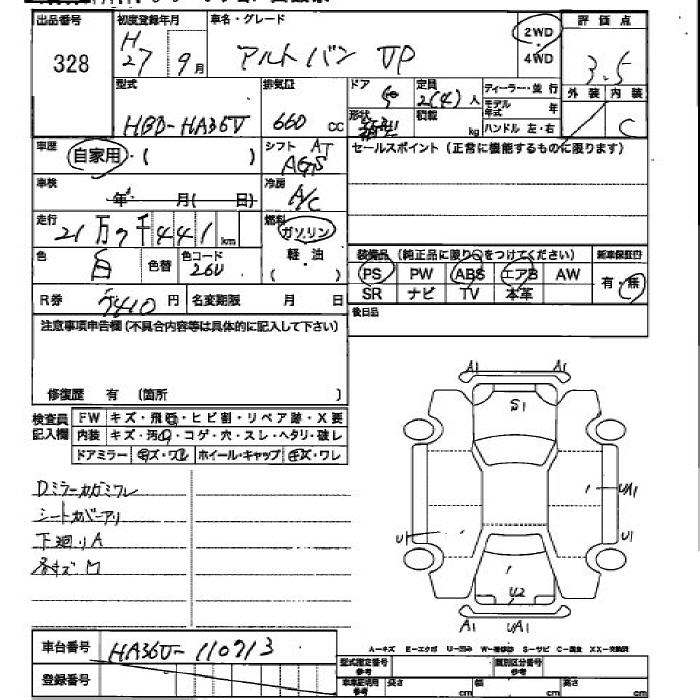 出品番号 初度登録年月 車名・グレード 評価点
328 H27 9月 アルトバン VP 2WD ・ 4WD 3.5
外装 内装
C
型式 排気量 ドア 定員 ディーラー・並行
HBD-HA36V 660 CC 5 2(4)人 モデル年式 年
形状 積載 kg ハンドル 左・右
車歴 シフト AT セールスポイント (正常に機能するものに限ります)
自家用・( ) AGS
車検 冷房
年 月( 日) A/C
走行 燃料
21万7千441km ガソリン
色 色替 色コード 軽・油 装備品 (純正品に限り○をつけてください) 新車保証書
白 26U ( ) PS PW ABS エアB AW 有・無
R券 7410円 名変期限 月 日 SR ナビ TV 本革
注意事項申告欄(不具合内容等は具体的に記入して下さい) 後日品
修復歴 有 (箇所 )
検査員記入欄 FW キズ・飛石・ヒビ割・リペア跡・X要
内装 キズ・汚れ・コゲ・穴・スレ・ヘタリ・破レ
ドアミラー キズ・ワレ ホイール・キャップ キズ・ワレ
A1 A1
S1
Dミラーカガミワレ
シートカバーアリ
下廻りA
各キズM
UA1
U1 U1
U2
A1 UA1
車台番号 HA36V-110713
登録番号
A…キズ E…エクボ U…凹み W…補修跡 S…サビ C…腐食 XX…交換済
型式指定番号 参考 類別区分番号 参考
車車証明用 参考 長さ cm 幅 cm 高さ cm